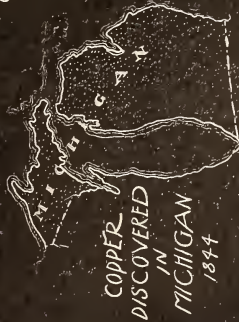 MICHIGAN
COPPER
DISCOVERED
IN
MICHIGAN
1844